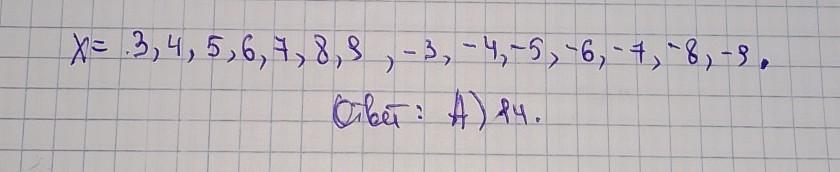 x = 3, 4, 5, 6, 7, 8, 9, -3, -4, -5, -6, -7, -8, -9.
Ответ: А) 14.